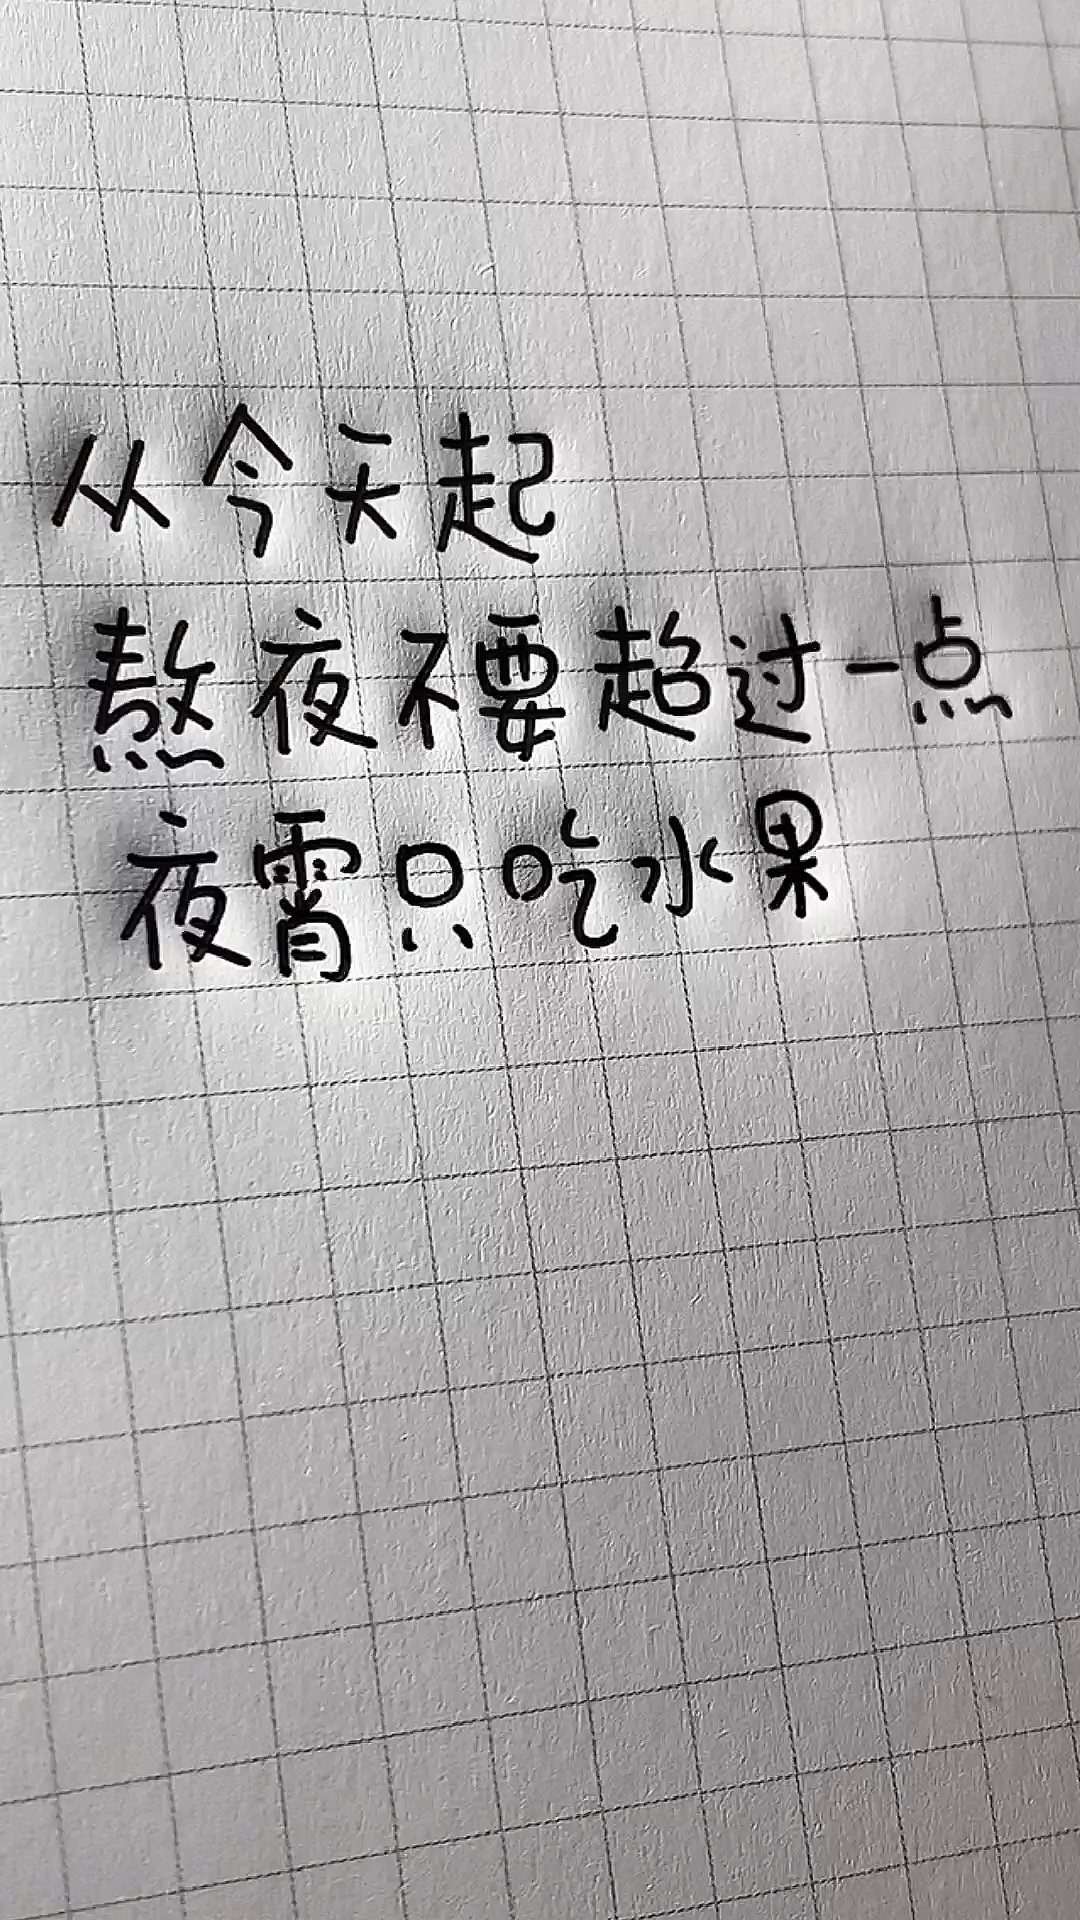 从今天起
熬夜不要超过一点
夜宵只吃水果